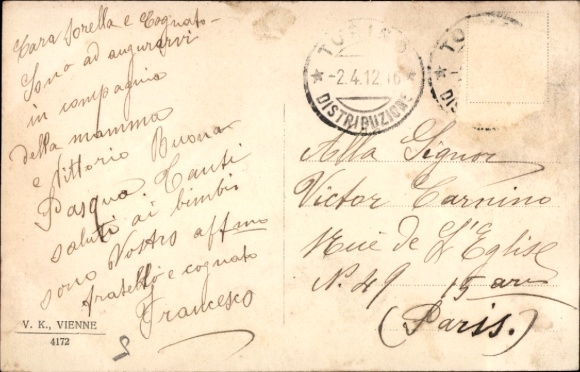 Cara Sorella e Cognato
Sono ad augurarvi
in compagnia
della mamma
e Vittorio Buona
Pasqua. Tanti
saluti ai bimbi
sono Vostro affmo
fratello e cognato
Francesco
V. K., VIENNE
4172
TORINO
-2.4.12 16
DISTRIBUZIONE
TO
DIS
Alla Signor
Victor Carnino
Rue de L'Eglise
N. 49 15 arr
(Paris.)